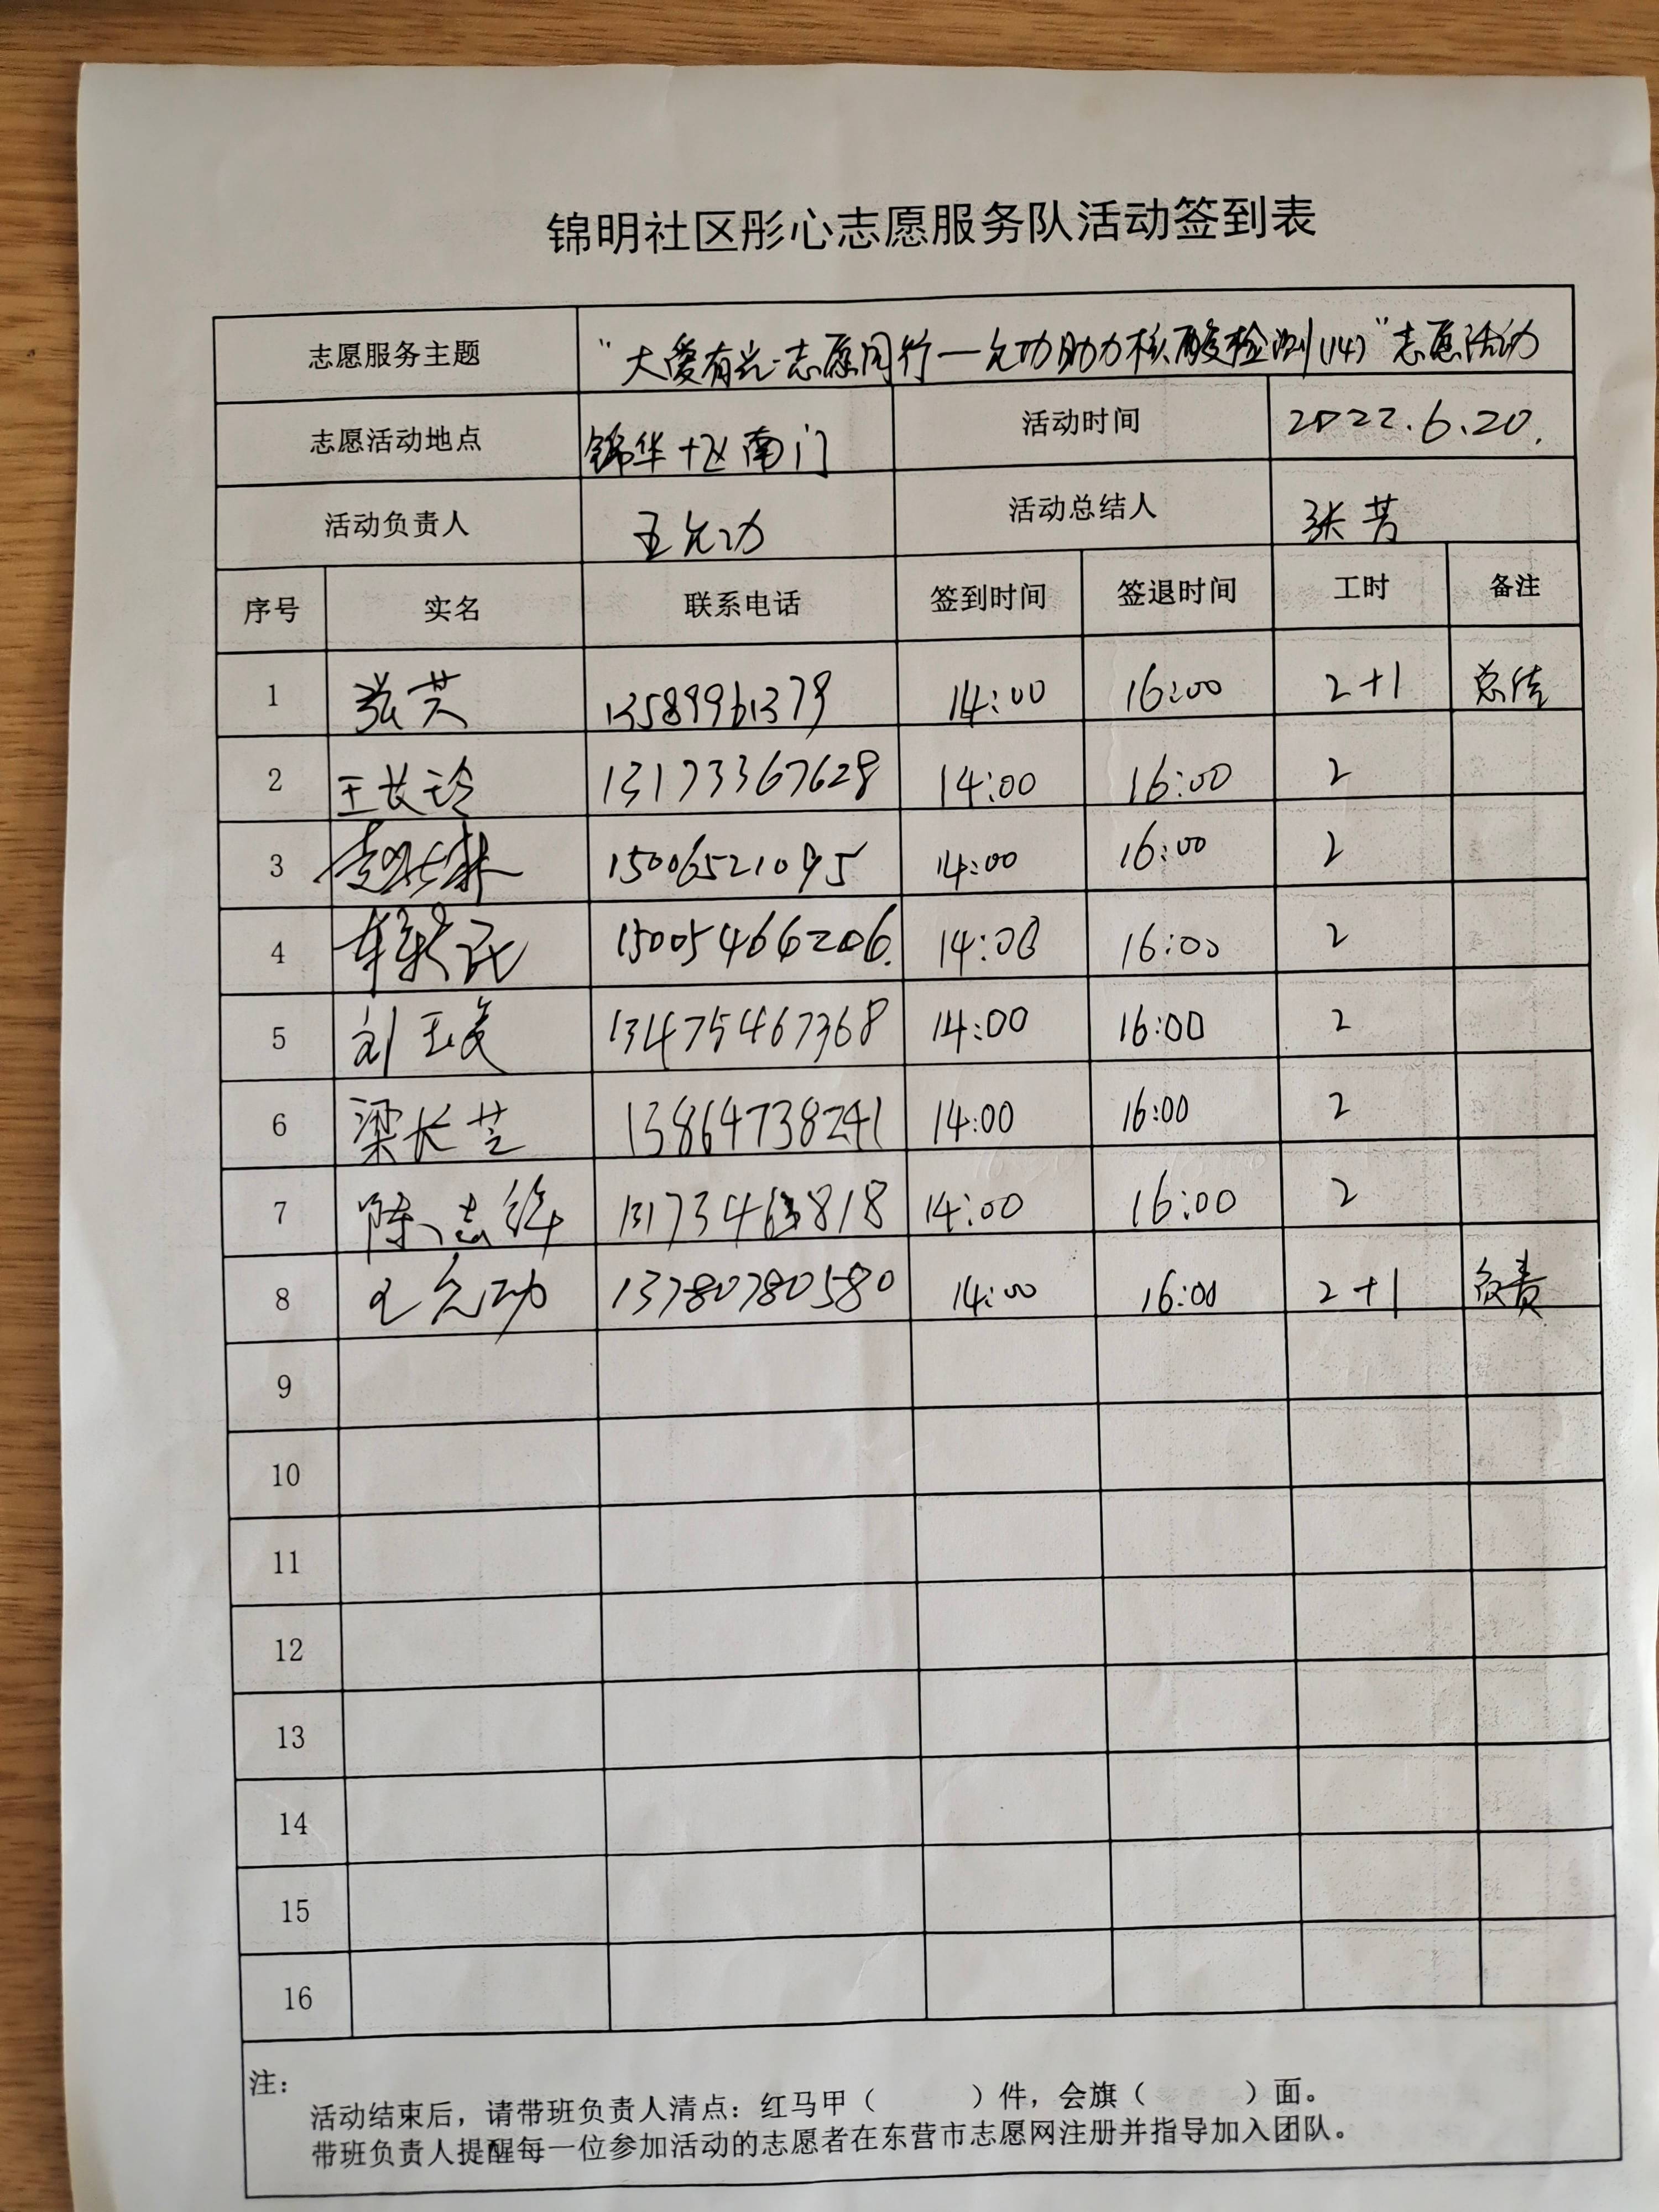 锦明社区彤心志愿服务队活动签到表
志愿服务主题 "大爱有光·志愿同行—允功助力核酸检测(14)"志愿活动
志愿活动地点 锦华十区南门 活动时间 2022.6.20.
活动负责人 王允功 活动总结人 张芳
序号 实名 联系电话 签到时间 签退时间 工时 备注
1 张芳 13589961379 14:00 16:00 2+1 总结
2 王长玲 13173367628 14:00 16:00 2
3 15006521095 14:00 16:00 2
4 15005466206. 14:00 16:00 2
5 刘玉 13475467368 14:00 16:00 2
6 梁长芝 13864738241 14:00 16:00 2
7 陈志 14:00 16:00 2
8 王允功 13780780580 14:00 16:00 2+1 负责
9
10
11
12
13
14
15
16
注:
活动结束后，请带班负责人清点：红马甲（ ）件，会旗（ ）面。
带班负责人提醒每一位参加活动的志愿者在东营市志愿网注册并指导加入团队。